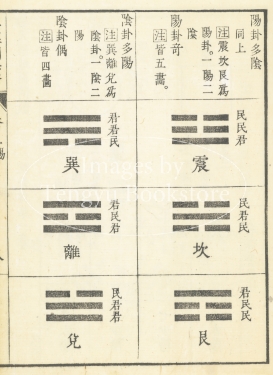 陽卦多陰
同上
注震坎艮爲
陽卦。一陽二
陰
陽卦奇
注皆五畫。
陰卦多陽
注巽離兌爲
陰卦。一陰二
陽
陰卦偶
注皆四畫
民民君
震
民君民
坎
君民民
艮
君君民
巽
君民君
離
民君君
兌